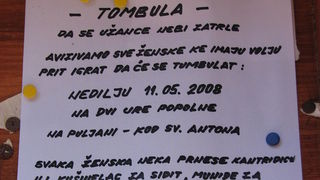 - TOMBULA -
DA SE UŽANCE NEBI ZATRLE
AVIZIVAMO SVE ŽENSKE KE IMAJU VOLJU
PRIT IGRAT DA ĆE SE TUMBULAT:
NEDILJU 11.05.2008
NA DVI URE POPOLNE
NA PULJANI - KOD SV. ANTONA
SVAKA ŽENSKA NEKA PRNESE KANTRIDICU
ILI KUŠINELAC ZA SIDIT, MUNIDE ZA